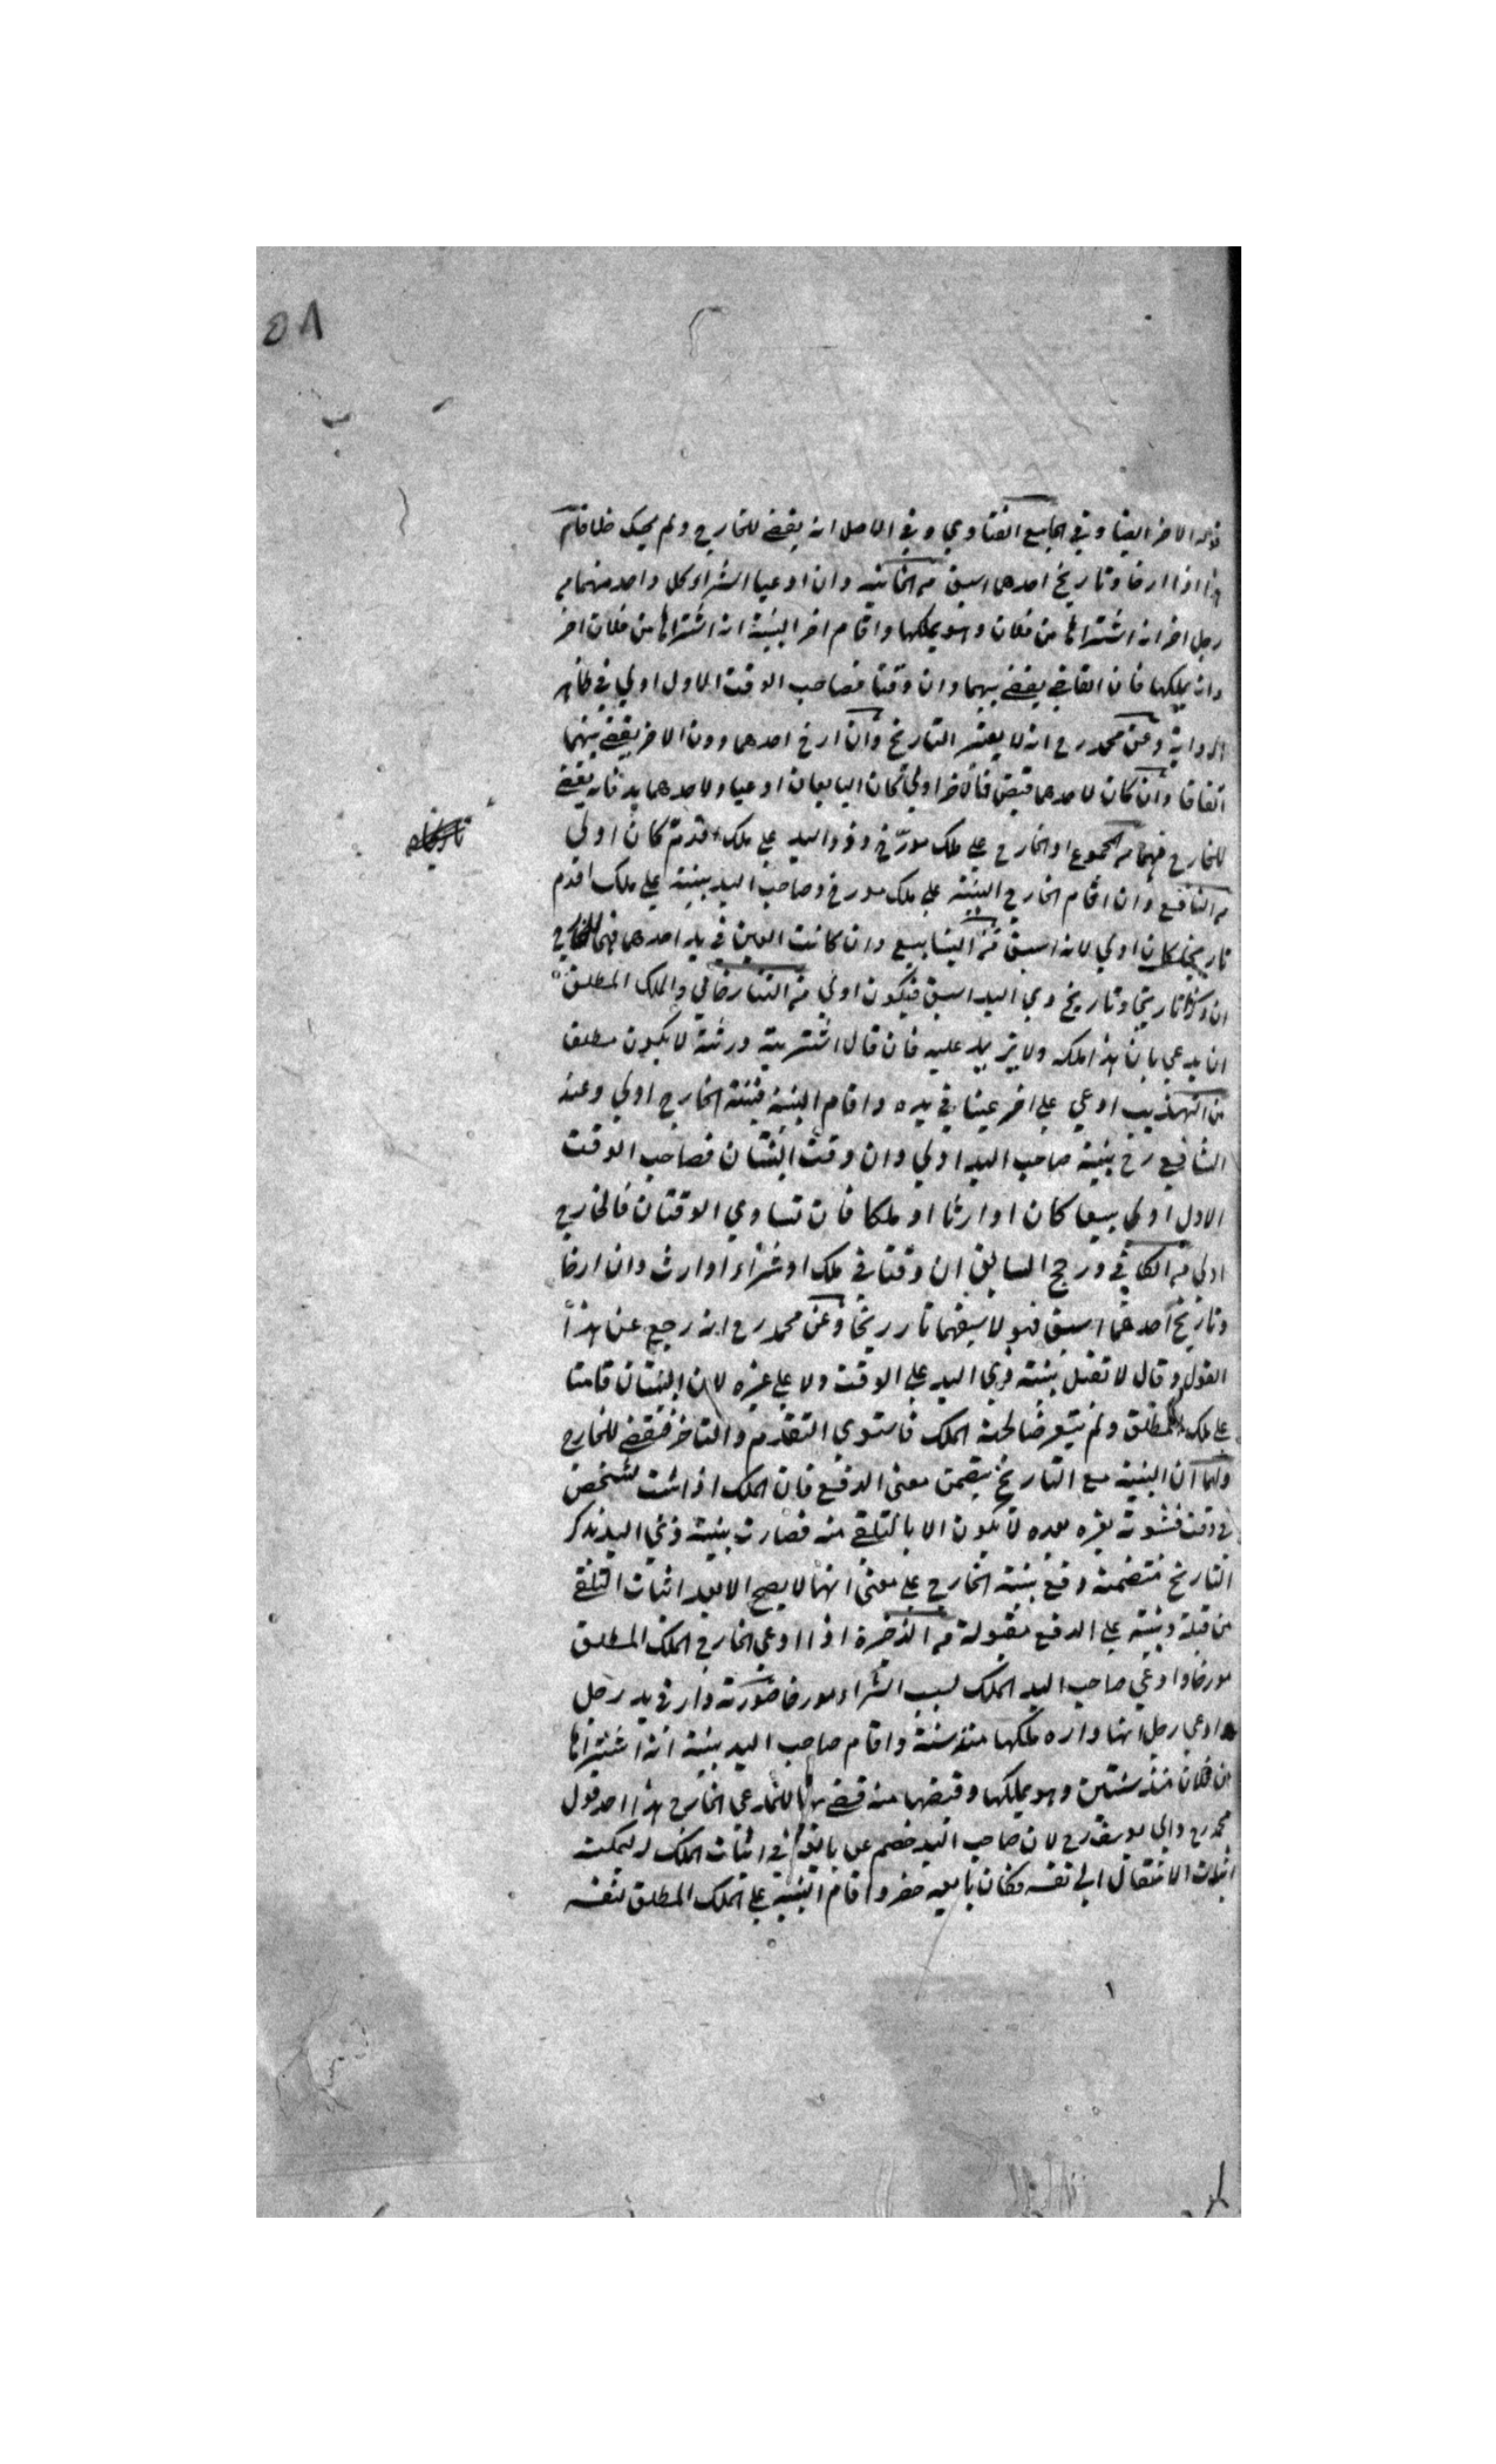 ٥٨
الاخر ايضا وفي الجامع الفتاوي وفي الاصل انه يقضي للخارج ولم يحك خلافا
هذا اذا ارخا وتاريخ احدهما اسبق من الخانية وان ادعيا الشراء كل واحد منهما من
رجل اخر انه اشتراها من فلان وهو يملكها واقام اخر البينة انه اشتراها من فلان اخر
وانه يملكها فان القاضي يقضي بينهما وان وقتا فصاحب الوقت الاول اولي في ظاهر
الرواية وعن محمد رح انه لا يعتبر التاريخ وان ارخ احدهما دون الاخر يقضي بينهما
اتفاقا وان كان لاحدهما قبض فالاخر اولي كان البايعان ادعيا ولاحدهما يد فانه يقضي
للخارج منهما من المجموع او الخارج علي ملك مورخ وذو اليد علي ملك اقدم كان اولي
من النافع وان اقام الخارج البينة علي ملك مورخ وصاحب اليد بينة علي ملك اقدم
تاريخا كان اولي لانه اسبق من الينابيع وان كانت العين في يد احدهما فهي للخارج
ان ذكرا تاريخا وتاريخ ذي اليد اسبق فيكون اولي من التتارخاني والملك المطلق
ان يدعي بان هذا ملكه ولا يزيد عليه فان قال اشتريته ورثته لا يكون مطلق
من التهذيب ادعي علي اخر عينا في يده واقام البينة فبينة الخارج اولي وعند
الشافعي رح بينة صاحب اليد اولي وان وقت البينتان فصاحب الوقت
الاول اولي بيعا كان او ارثا او ملكا فان تساوي الوقتان فالخارج
اولي من الكافي ورجح السابق ان وقتا في ملك او شراء او ارث وان ارخا
وتاريخ احدهما اسبق فهو لاسبقهما تاريخا وعن محمد رح انه رجع عن هذا
القول وقال لا تقبل بينة ذي اليد علي الوقت ولا علي غيره لان البينتان قامتا
علي ملك المطلق ولم يتعرضا لجهة الملك فاستوي التقدم والتاخر فيقضي للخارج
ولهما ان البينة مع التاريخ يتضمن معني الدفع فان الملك اذا ثبت لشخص
في وقت فثبوته لغيره بعده لا يكون الا بالتلقي منه فصارت بينة ذي اليد بذكر
التاريخ متضمنة دفع بينة الخارج علي معني انها لا يصح الا بعد اثبات التلقي
من قبله وبينته علي الدفع مقبولة من الذخيرة اذا ادعي الخارج الملك المطلق
مورخا وادعي صاحب اليد الملك بسبب الشراء مورخا صورته دار في يد رجل
ادعي رجل انها داره ملكها منذ سنة واقام صاحب اليد بينة انه اشتراها
من فلان منذ سنتين وهو يملكها وقبضها منه قضي بها للمدعي الخارج هذا احد قول
محمد رح وابي يوسف رح لان صاحب اليد خصم عن بايعه في اثبات الملك له ليمكنه
اثبات الانتقال الي نفسه فكان بايعه حضر واقام البينة علي الملك المطلق لنفسه